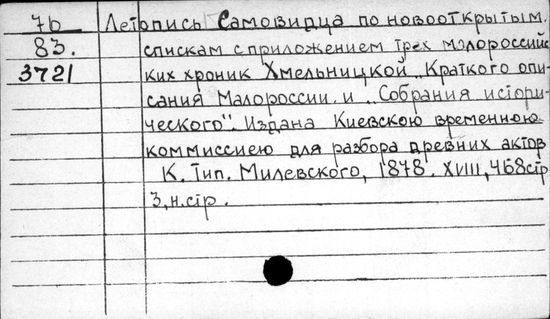 7б Летопись Самовидца по новооткрытым
83. спискам с приложением трех малороссийс
3721 ких хроник Хмельницкой „Краткого опи
сания Малороссии. и „Собрания истори
ческого". Издана Киевскою временною
коммиссиею для разбора древних актов
К. Тип. Милевского, 1878. XVIII, 468 стр
3,н.стр.